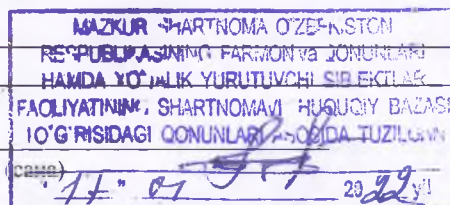 MAZKUR SHARTNOMA O'ZBEKISTON
RESPUBLIKASINING FARMON va QONUNLARI
HAMDA XO'JALIK YURUTUVCHI SUB'EKTLAR
FAOLIYATINING SHARTNOMAVIY HUQUQIY BAZASI
TO'G'RISIDAGI QONUNLARI ASOSIDA TUZILGAN
(сана)
" 17 " 01 2022 yil